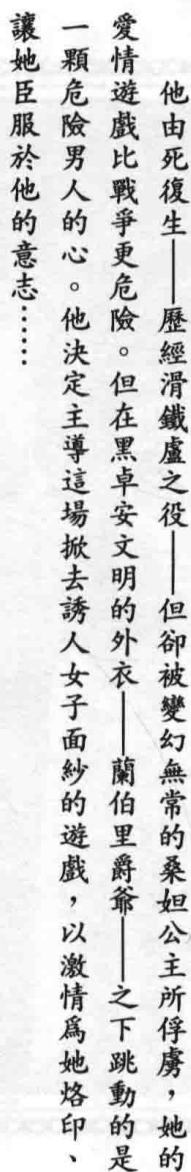 他由死復生——歷經滑鐵盧之役——但卻被變幻無常的桑妲公主所俘虜，她的
愛情遊戲比戰爭更危險。但在黑卓安文明的外衣——蘭伯里爵爺——之下跳動的是
一顆危險男人的心。他決定主導這場掀去誘人女子面紗的遊戲，以激情爲她烙印、
讓她臣服於他的意志……